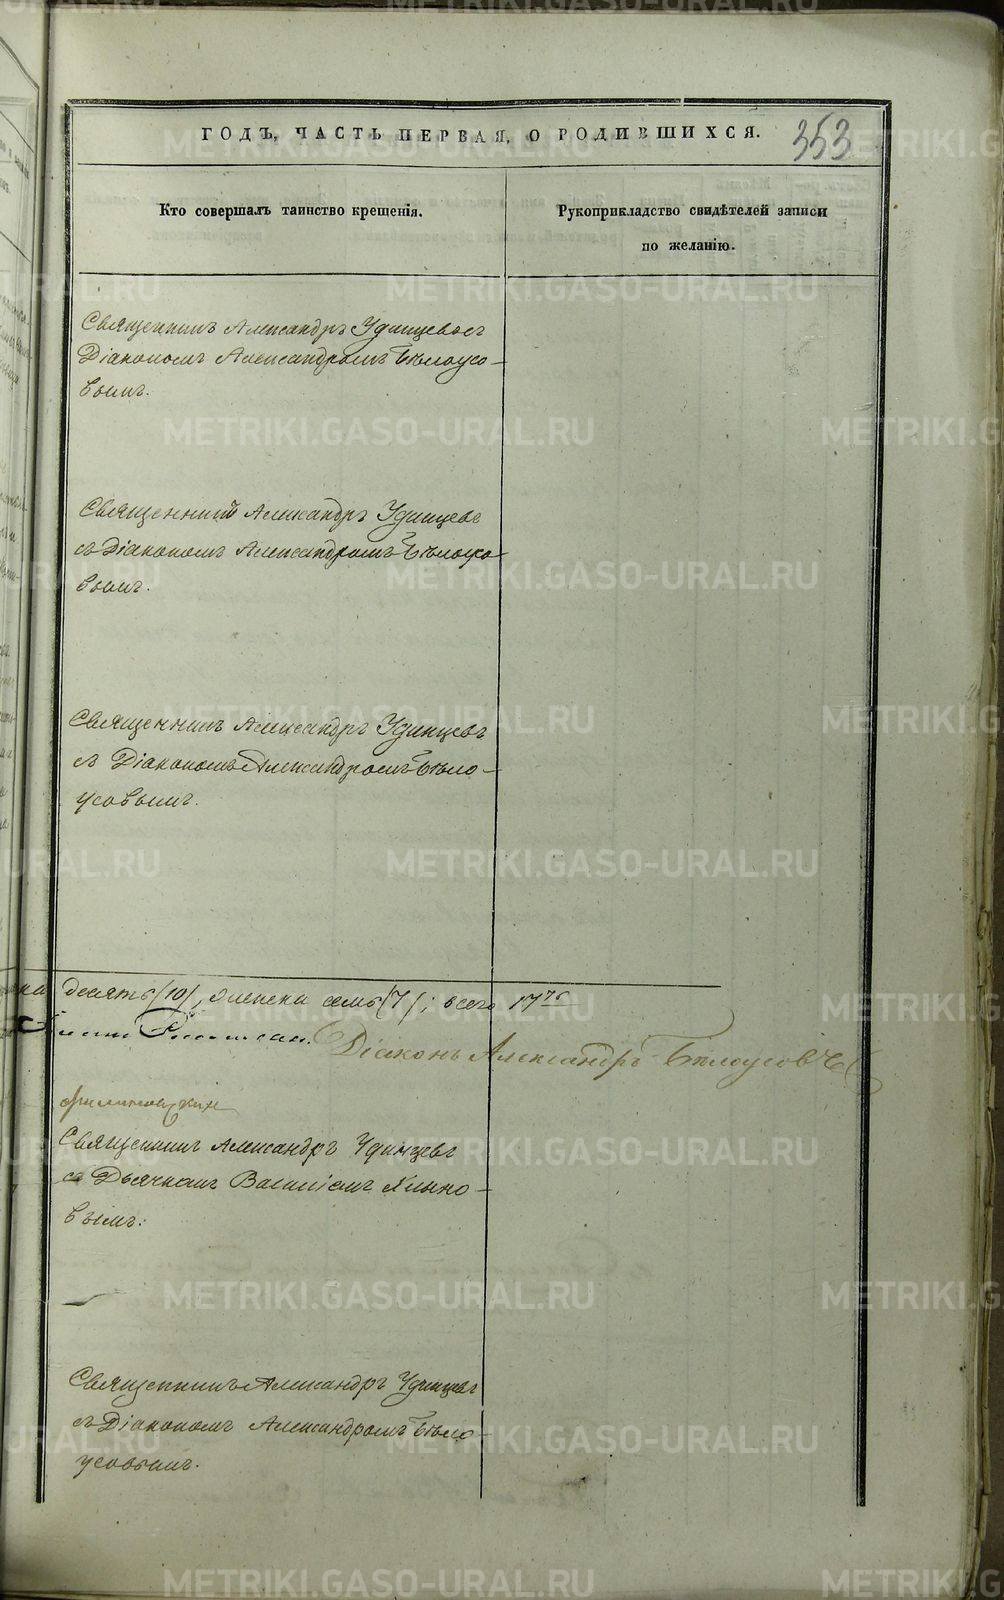 ГОДЪ, ЧАСТЬ ПЕРВАЯ, О РОДИВШИХСЯ. 353
Кто совершалъ таинство крещенія.
Рукоприкладство свидѣтелей записи
по желанію.
Священникъ Александръ Удинцевъ съ
Діакономъ Александромъ Бѣлоусо-
вымъ.
Священникъ Александръ Удинцевъ
съ Діакономъ Александромъ Бѣлоусо-
вымъ.
Священникъ Александръ Удинцевъ
съ Діакономъ Александромъ Бѣло-
усовымъ.
десять (10), женска семь (7); всего 17ть
Діаконъ Александръ Бѣлоусовъ
Священникъ Александръ Удинцевъ
съ Дьячкомъ Василіемъ Хлыно-
вымъ.
Священникъ Александръ Удинцевъ
съ Діакономъ Александромъ Бѣло-
усовымъ.
METRIKI.GASO-URAL.RU